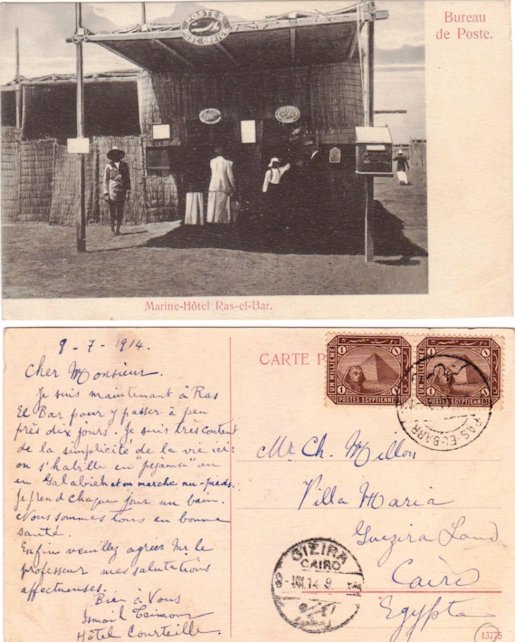 Bureau
de Poste.
POSTES
Marine-Hôtel Ras-el-Bar.
9-7-1914.
Cher Monsieur.
Je suis maintenant à Ras
El Bar pour y passer à peu
près dix jours. Je suis très content
de la simplicité de la vie ici:
on s'habille en pejama ou
en Galabieh et on marche nu-pieds.
Je prend chaque jour un bain.
Nous sommes tous en bonne
santé.
Enfin veuillez agréer Mr le
professeur mes salutations
affectueuses.
Bien à Vous
Ismail Teimour
Hôtel Courteille.
CARTE P
UN MILLIEME
1
POSTES EGYPTIENNES
UN MILLIEME
1
POSTES EGYPTIENNES
RAS-EL-BARR
Mr. Ch. Millon
Villa Maria
Guezira Land
Cairo
Egypta
GIZIRA
CAIRO
14
13775